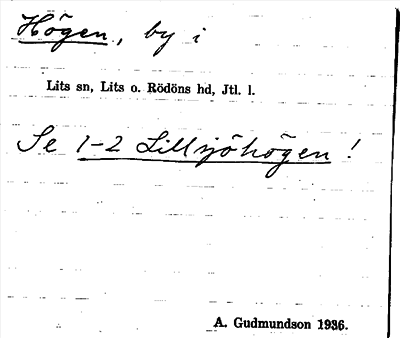 Högen, by i
Lits sn, Lits o. Rödöns hd, Jtl. l.
Se 1-2 Lillsjöhögen!
A. Gudmundson 1936.